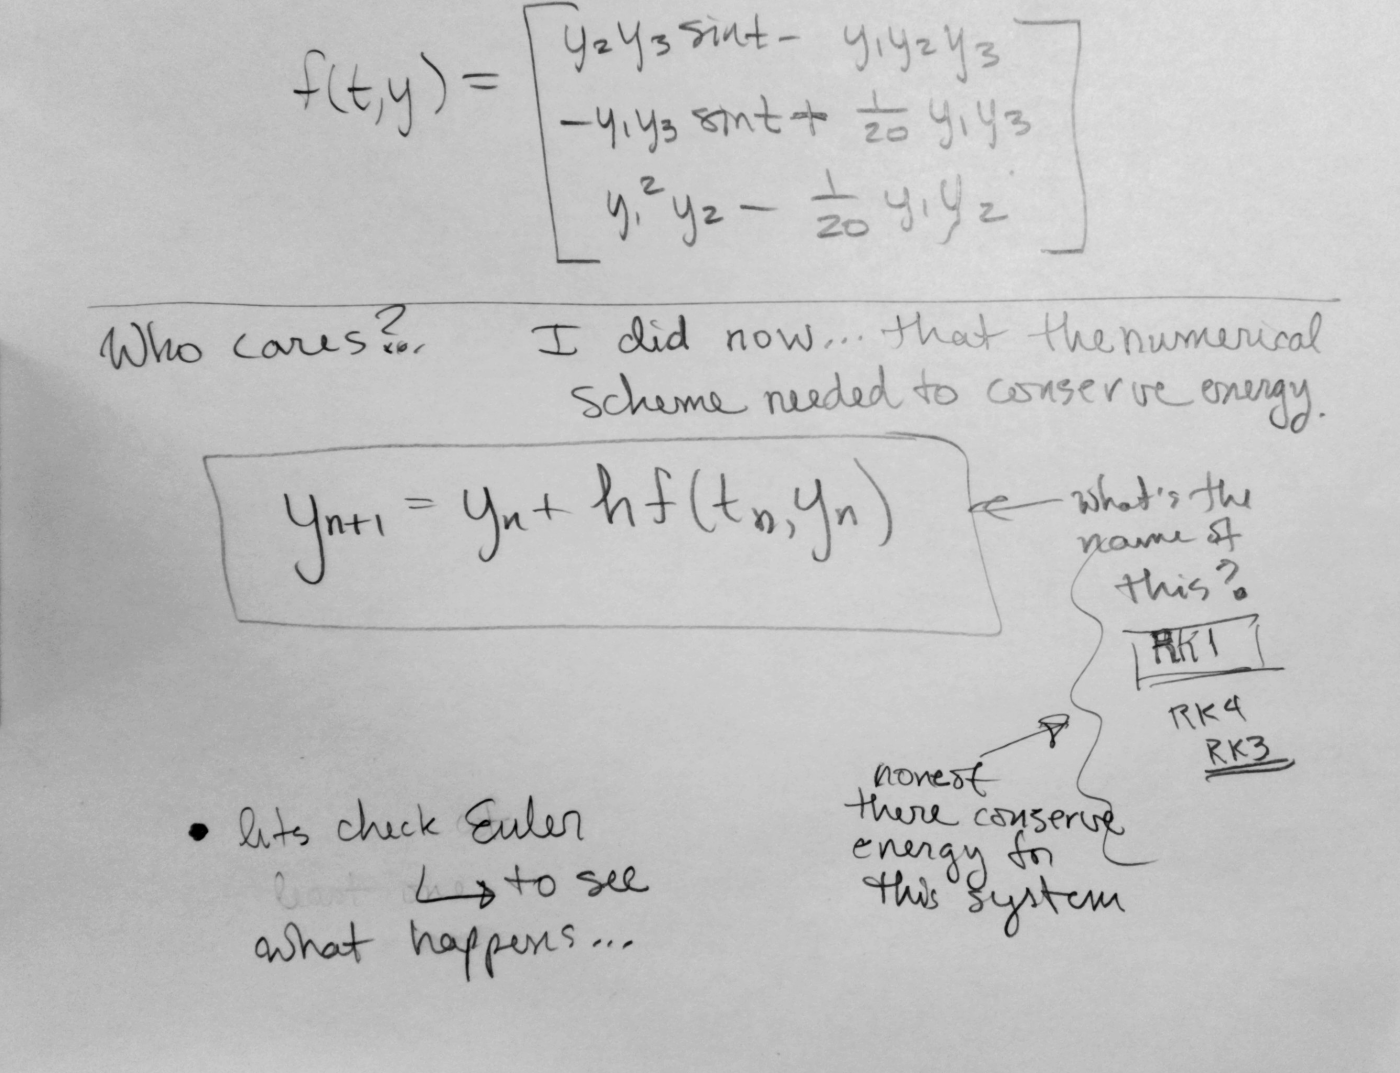 f(t,y) = [ y₂y₃ sint - y₁y₂y₃
-y₁y₃ sint + 1/20 y₁y₃
y₁²y₂ - 1/20 y₁y₂ ]
Who cares?... I did now... that the numerical
scheme needed to conserve energy.
yₙ₊₁ = yₙ + hf(tₙ,yₙ)
← what's the
name of
this?
RK1
RK4
RK3
none of
there conserve
energy for
this system
• lets check Euler
↳ to see
what happens...